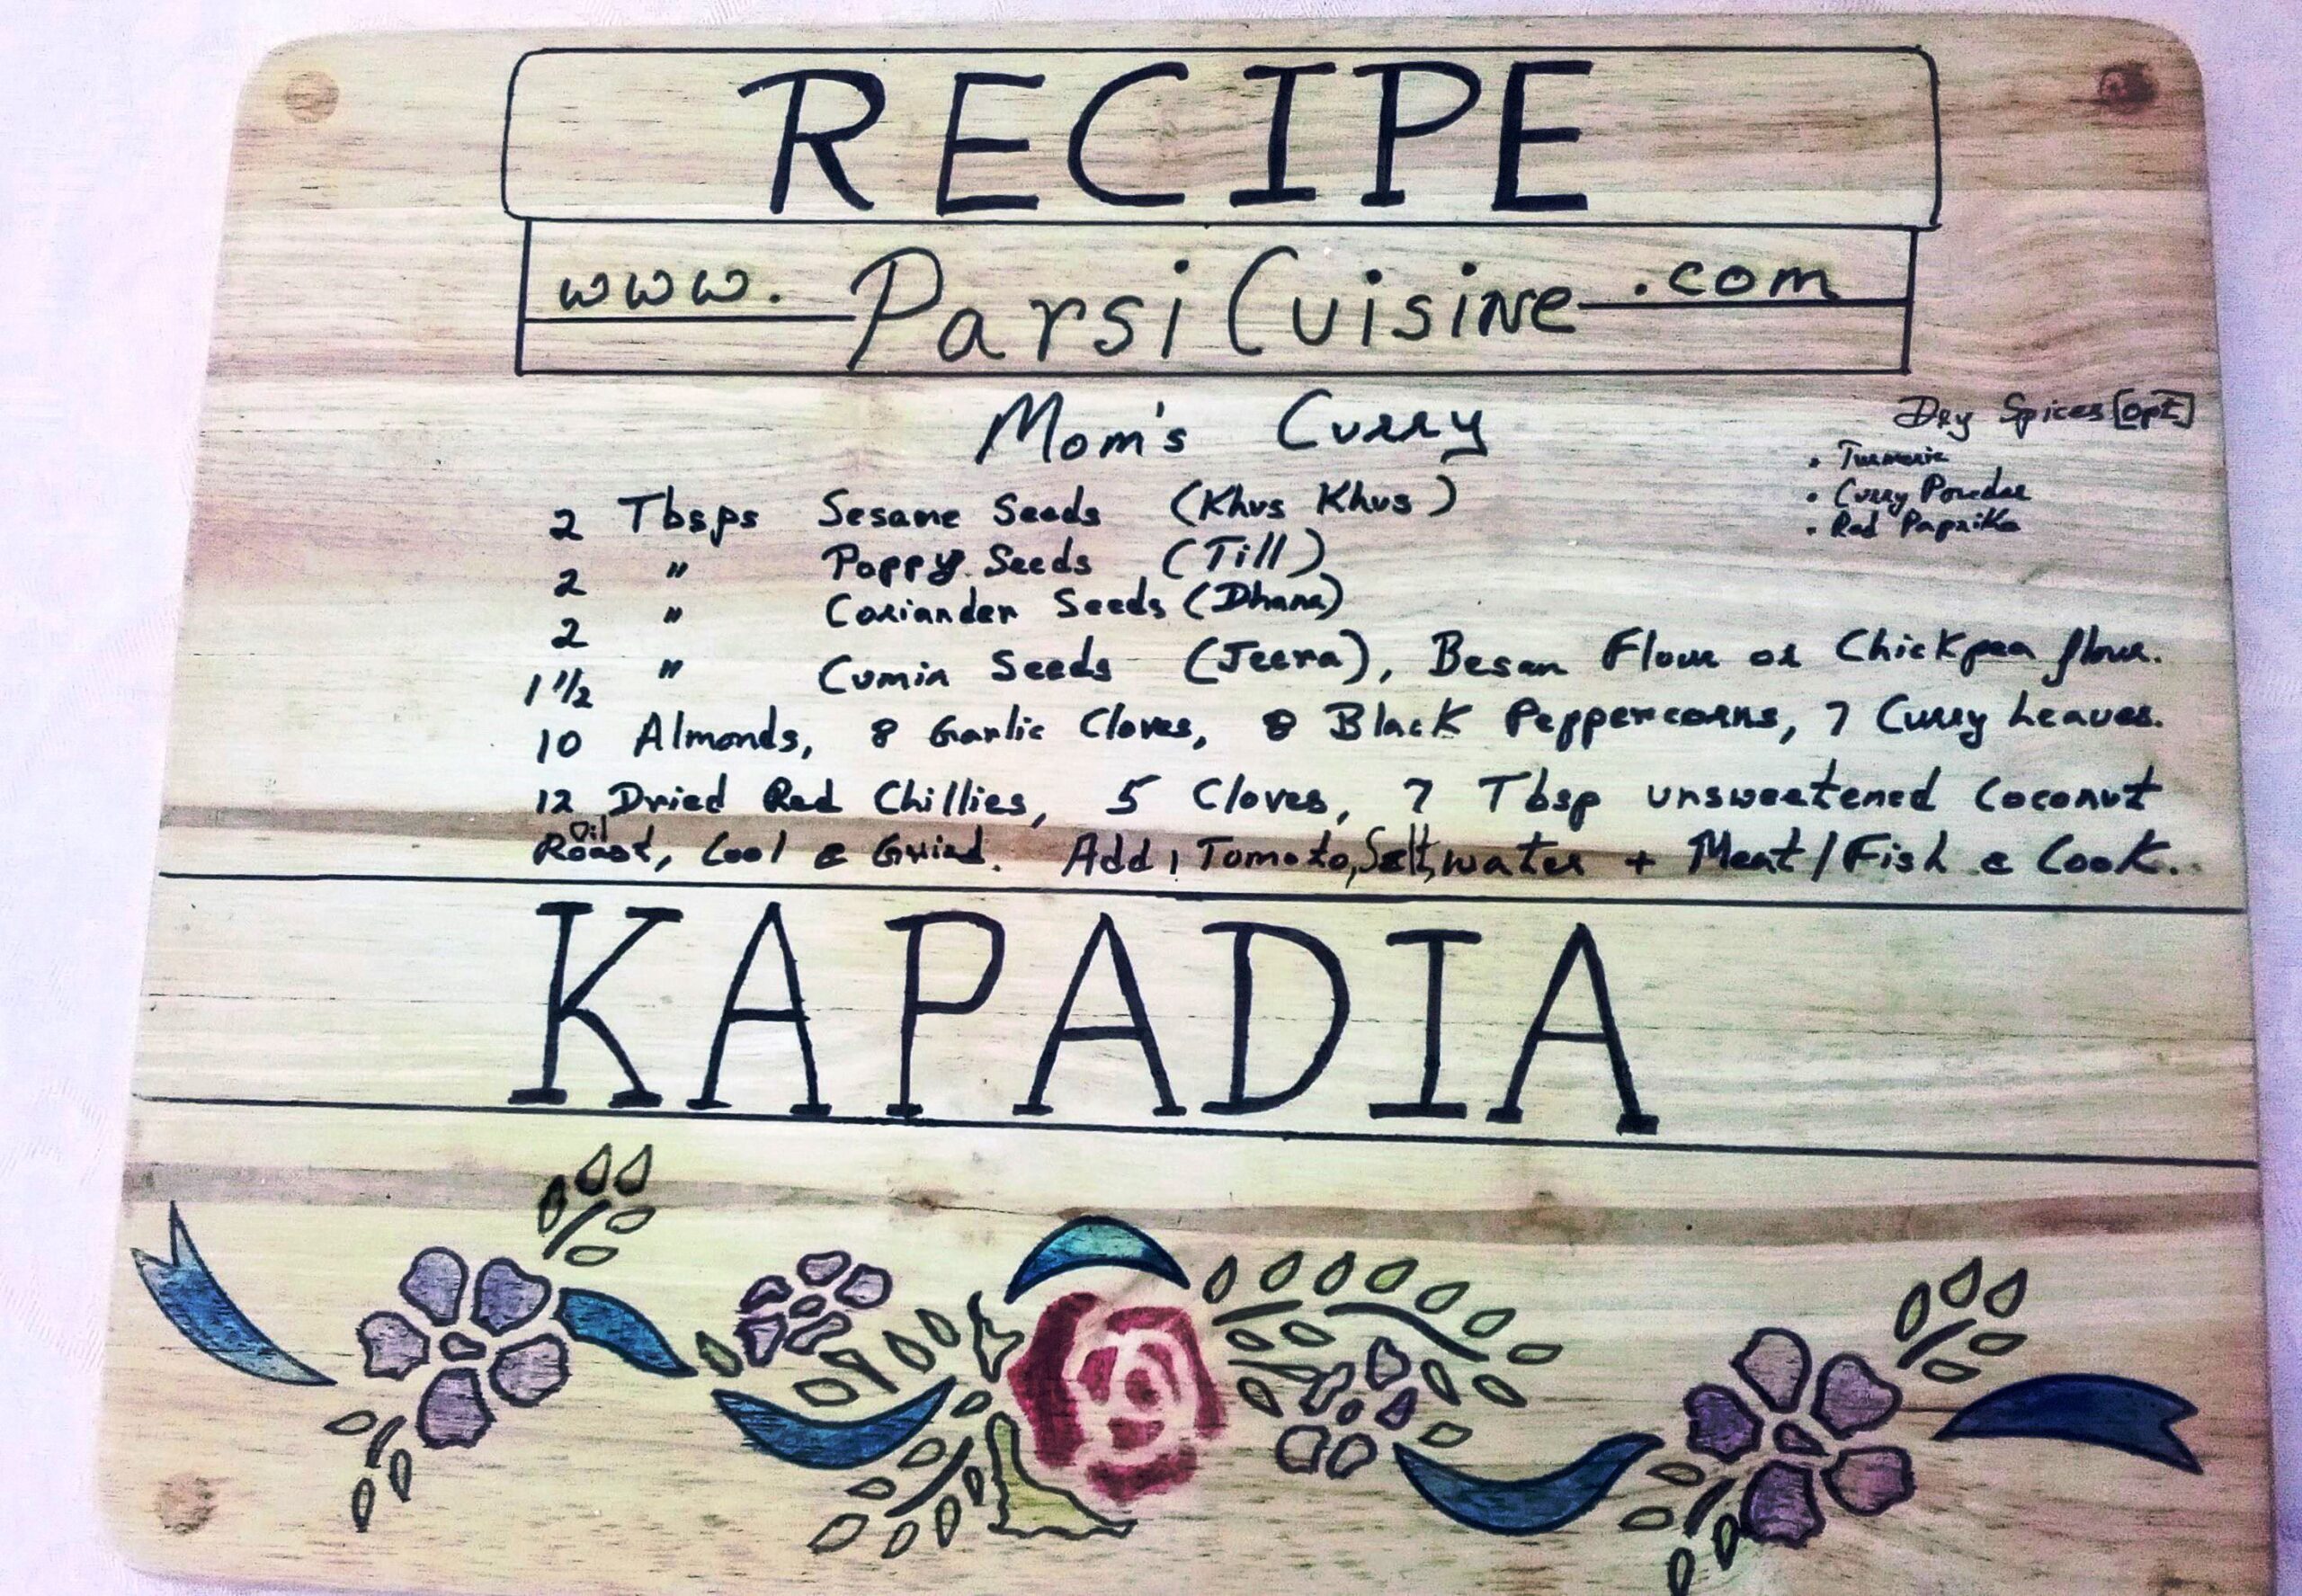 RECIPE
www. ParsiCuisine .com
Mom's Curry
Dry Spices [opt]
• Turmeric
• Curry Powder
• Red Paprika
2 Tbsps Sesame Seeds (Khus Khus)
2 " Poppy Seeds (Till)
2 " Coriander Seeds (Dhana)
1 1/2 " Cumin Seeds (Jeera), Besan Flour or Chickpea flour.
10 Almonds, 8 Garlic Cloves, 8 Black Peppercorns, 7 Curry Leaves.
12 Dried Red Chillies, 5 Cloves, 7 Tbsp unsweetened Coconut
Oil
Roast, Cool & Grind. Add 1 Tomato, Salt, water + Meat/Fish & Cook.
KAPADIA